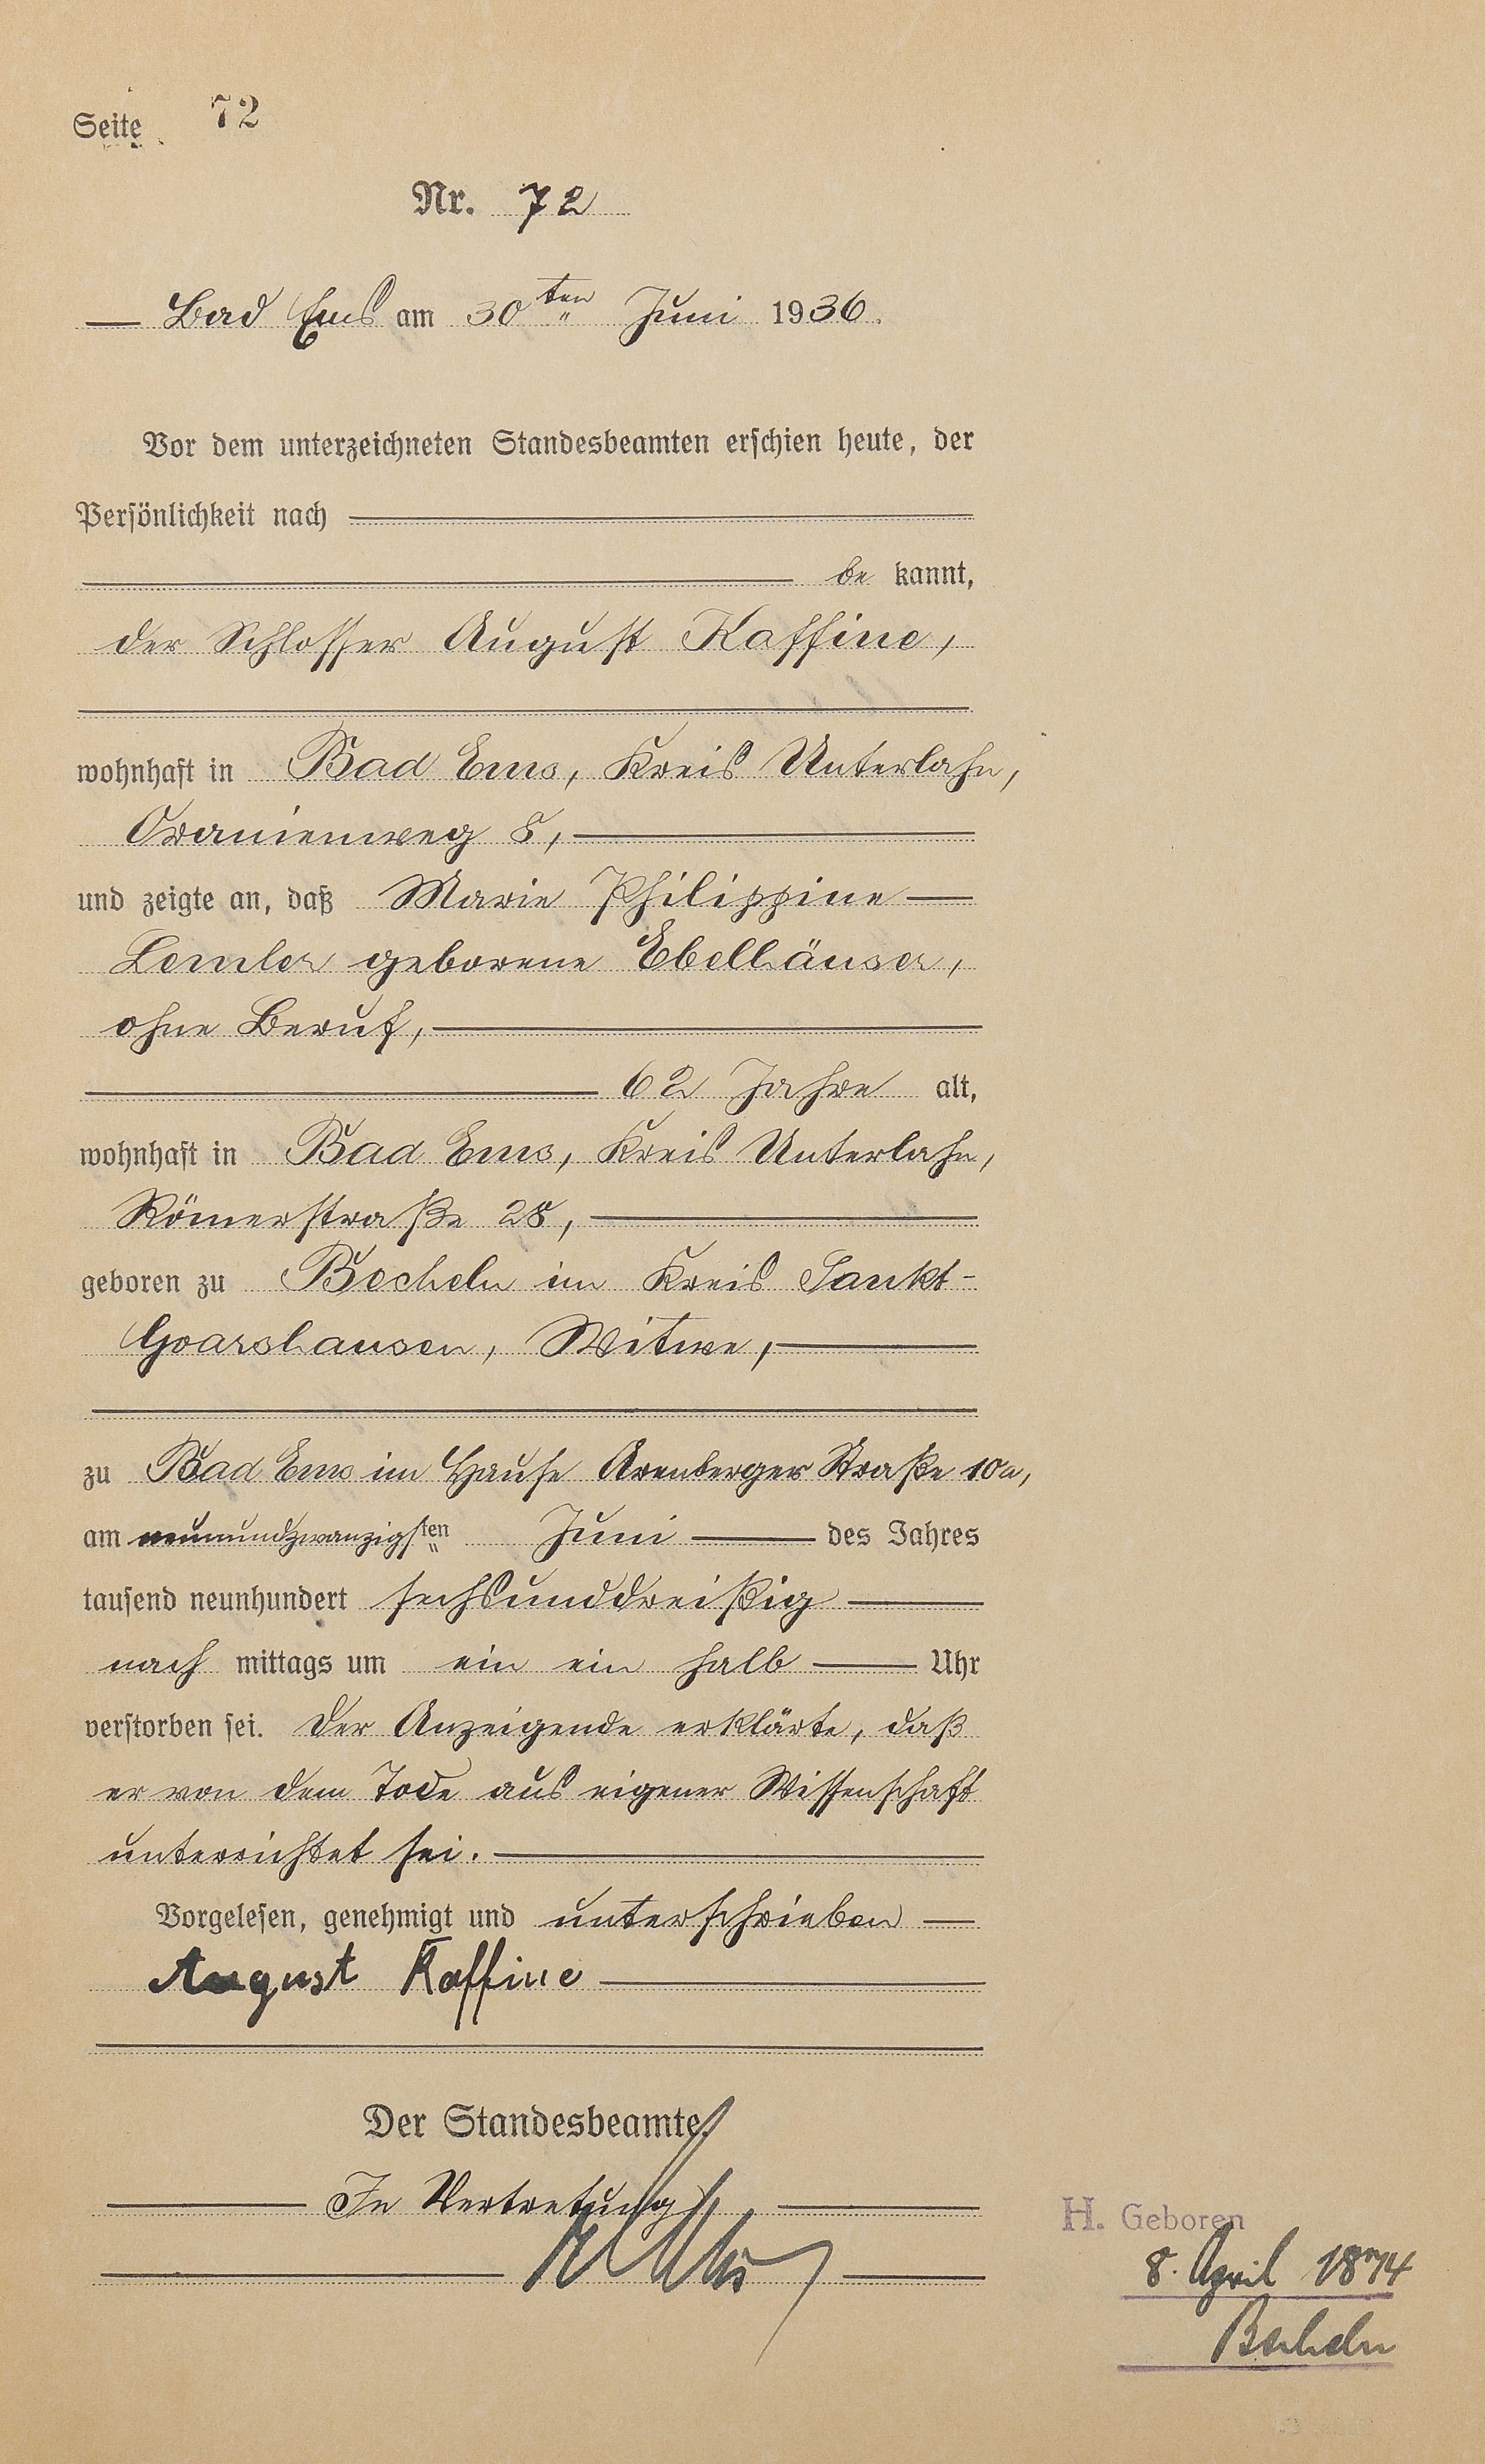 Seite 72
Nr. 72
Bad Ems am 30ten Juni 1936.
Vor dem unterzeichneten Standesbeamten erschien heute, der
Persönlichkeit nach
be kannt,
der Schlosser August Kaffine,
wohnhaft in Bad Ems, Kreis Unterlahn,
Oranienweg 8,
und zeigte an, daß Marie Philippine
Lemler geborene Ebelhäuser,
ohne Beruf,
62 Jahre alt,
wohnhaft in Bad Ems, Kreis Unterlahn,
Römerstraße 28,
geboren zu Becheln im Kreis Sankt-
Goarshausen, Witwe,
zu Bad Ems im Hause Arenberger Straße 10a,
am neunundzwanzigsten Juni des Jahres
tausend neunhundert sechsunddreißig
nach mittags um ein ein halb Uhr
verstorben sei. Der Anzeigende erklärte, daß
er von dem Tode aus eigener Wissenschaft
unterrichtet sei.
Vorgelesen, genehmigt und unterschrieben
August Kaffine
Der Standesbeamte.
In Vertretung
H. Geboren
8. April 1874
Becheln